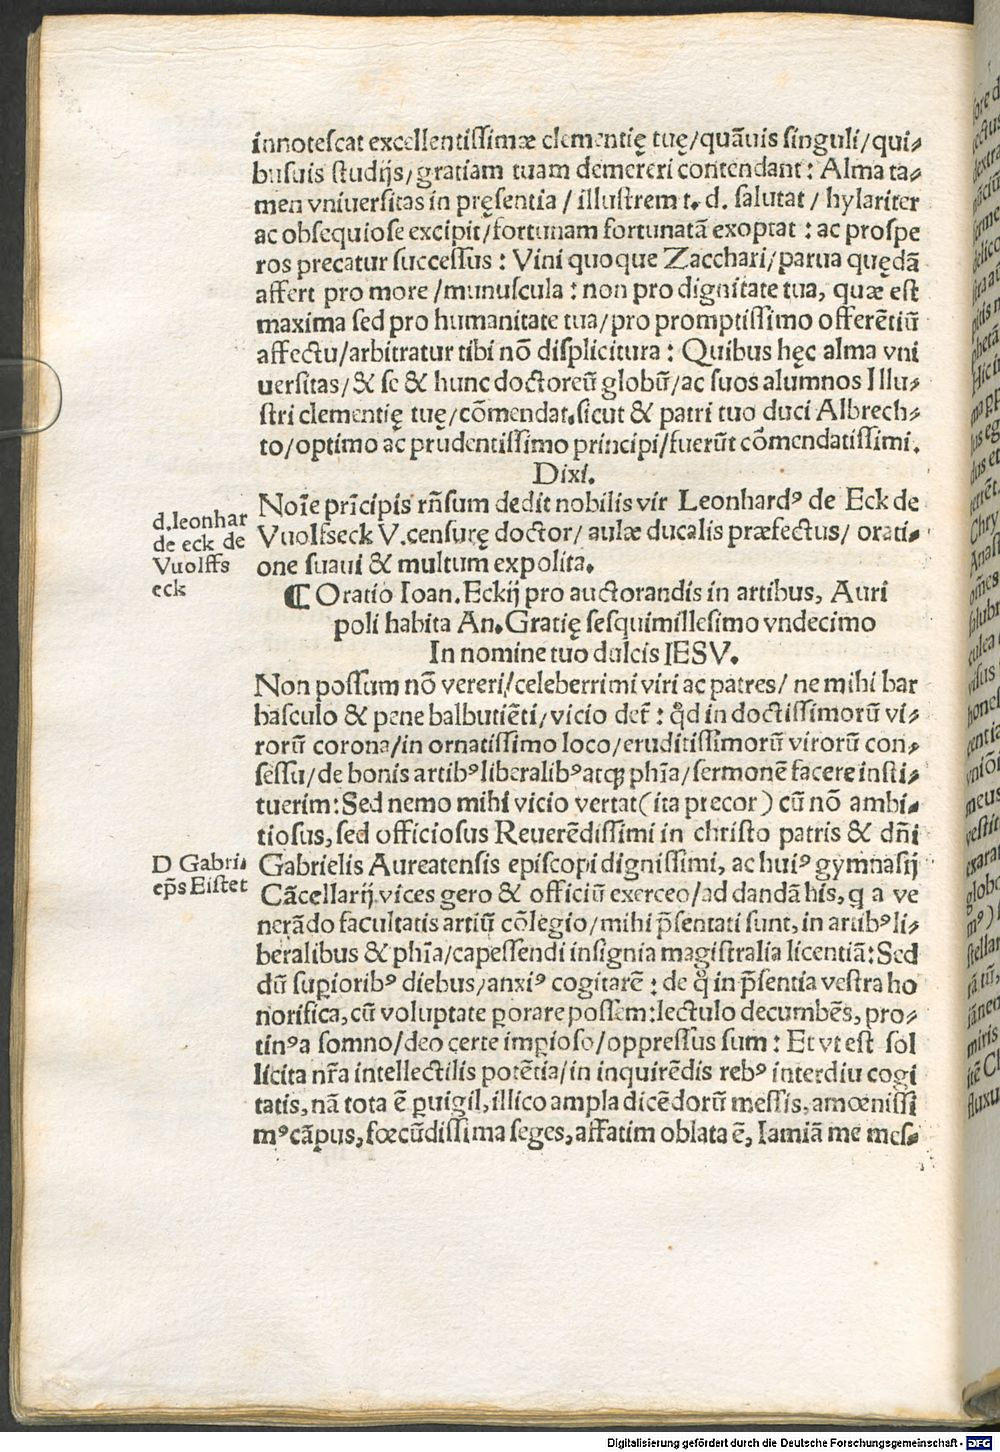 innotescat excellentissimæ clementię tuę/quãuis singuli/qui⸗
busuis studijs/gratiam tuam demereri contendant: Alma ta⸗
men vniuersitas in pręsentia/illustrem t. d. salutat/hylariter
ac obsequiose excipit/fortunam fortunatã exoptat: ac prospe
ros precatur successus: Vini quoque Zacchari/parua quędã
affert pro more/munuscula: non pro dignitate tua, quæ est
maxima sed pro humanitate tua/pro promptissimo offerẽtiũ
affectu/arbitratur tibi nõ displicitura: Quibus hęc alma vni
uersitas/& se & hunc doctoreũ globũ/ac suos alumnos Illu⸗
stri clementię tuę/cõmendat.sicut & patri tuo duci Albrech⸗
to/optimo ac prudentissimo principi/fuerũt cõmendatissimi.
Dixi.
Noĩe prĩcipis rñsum dedit nobilis vir Leonhardꝰ de Eck de
Vuolfseck V.censurę doctor/ aulæ ducalis præfectus/ orati⸗
one suaui & multum expolita.
d.leonhar
de eck de
Vuolffs
eck
¶ Oratio Ioan.Eckij pro auctorandis in artibus, Auri
poli habita An.Gratię sesquimillesimo vndecimo
In nomine tuo dulcis IESV.
Non possum nõ vereri/celeberrimi viri ac patres/ ne mihi bar
basculo & pene balbutiẽti/vicio det̃: qd̃ in doctissimorũ vi⸗
rorũ corona/in ornatissimo loco/eruditissimorũ virorũ con⸗
sessu/de bonis artibꝰliberalibꝰatqꝫ phĩa/sermonẽ facere insti⸗
tuerim: Sed nemo mihi vicio vertat(ita precor) cũ nõ ambi⸗
tiosus, sed officiosus Reuerẽdissimi in christo patris & dñi
Gabrielis Aureatensis episcopi dignissimi, ac huiꝰ gymnasij
Cãcellarij vices gero & officiũ exerceo/ad dandã his, q a ve
nerãdo facultatis artiũ cõlegio/mihi p̃sentati sunt, in artibꝰli⸗
beralibus & phĩa/capessendi insignia magistralia licentiã: Sed
dũ supioribꝰ diebus/anxiꝰ cogitarẽ: de q̃ in p̃sentia vestra ho
norifica, cũ voluptate ꝑorare possem:lectulo decumbẽs, pro⸗
tinꝰa somno/deo certe impioso/oppressus sum: Et vt est sol
licita nr̃a intellectilis potẽtia/in inquirẽdis rebꝰ interdiu cogi
tatis, nã tota ẽ ꝑuigil, illico ampla dicẽdorũ messis, amœnissi
mꝰcãpus, fœcũdissima seges, affatim oblata ẽ, Iamiã me mes⸗
D Gabri⸗
ep̃s Eistet
Digitalisierung gefördert durch die Deutsche Forschungsgemeinschaft - DFG